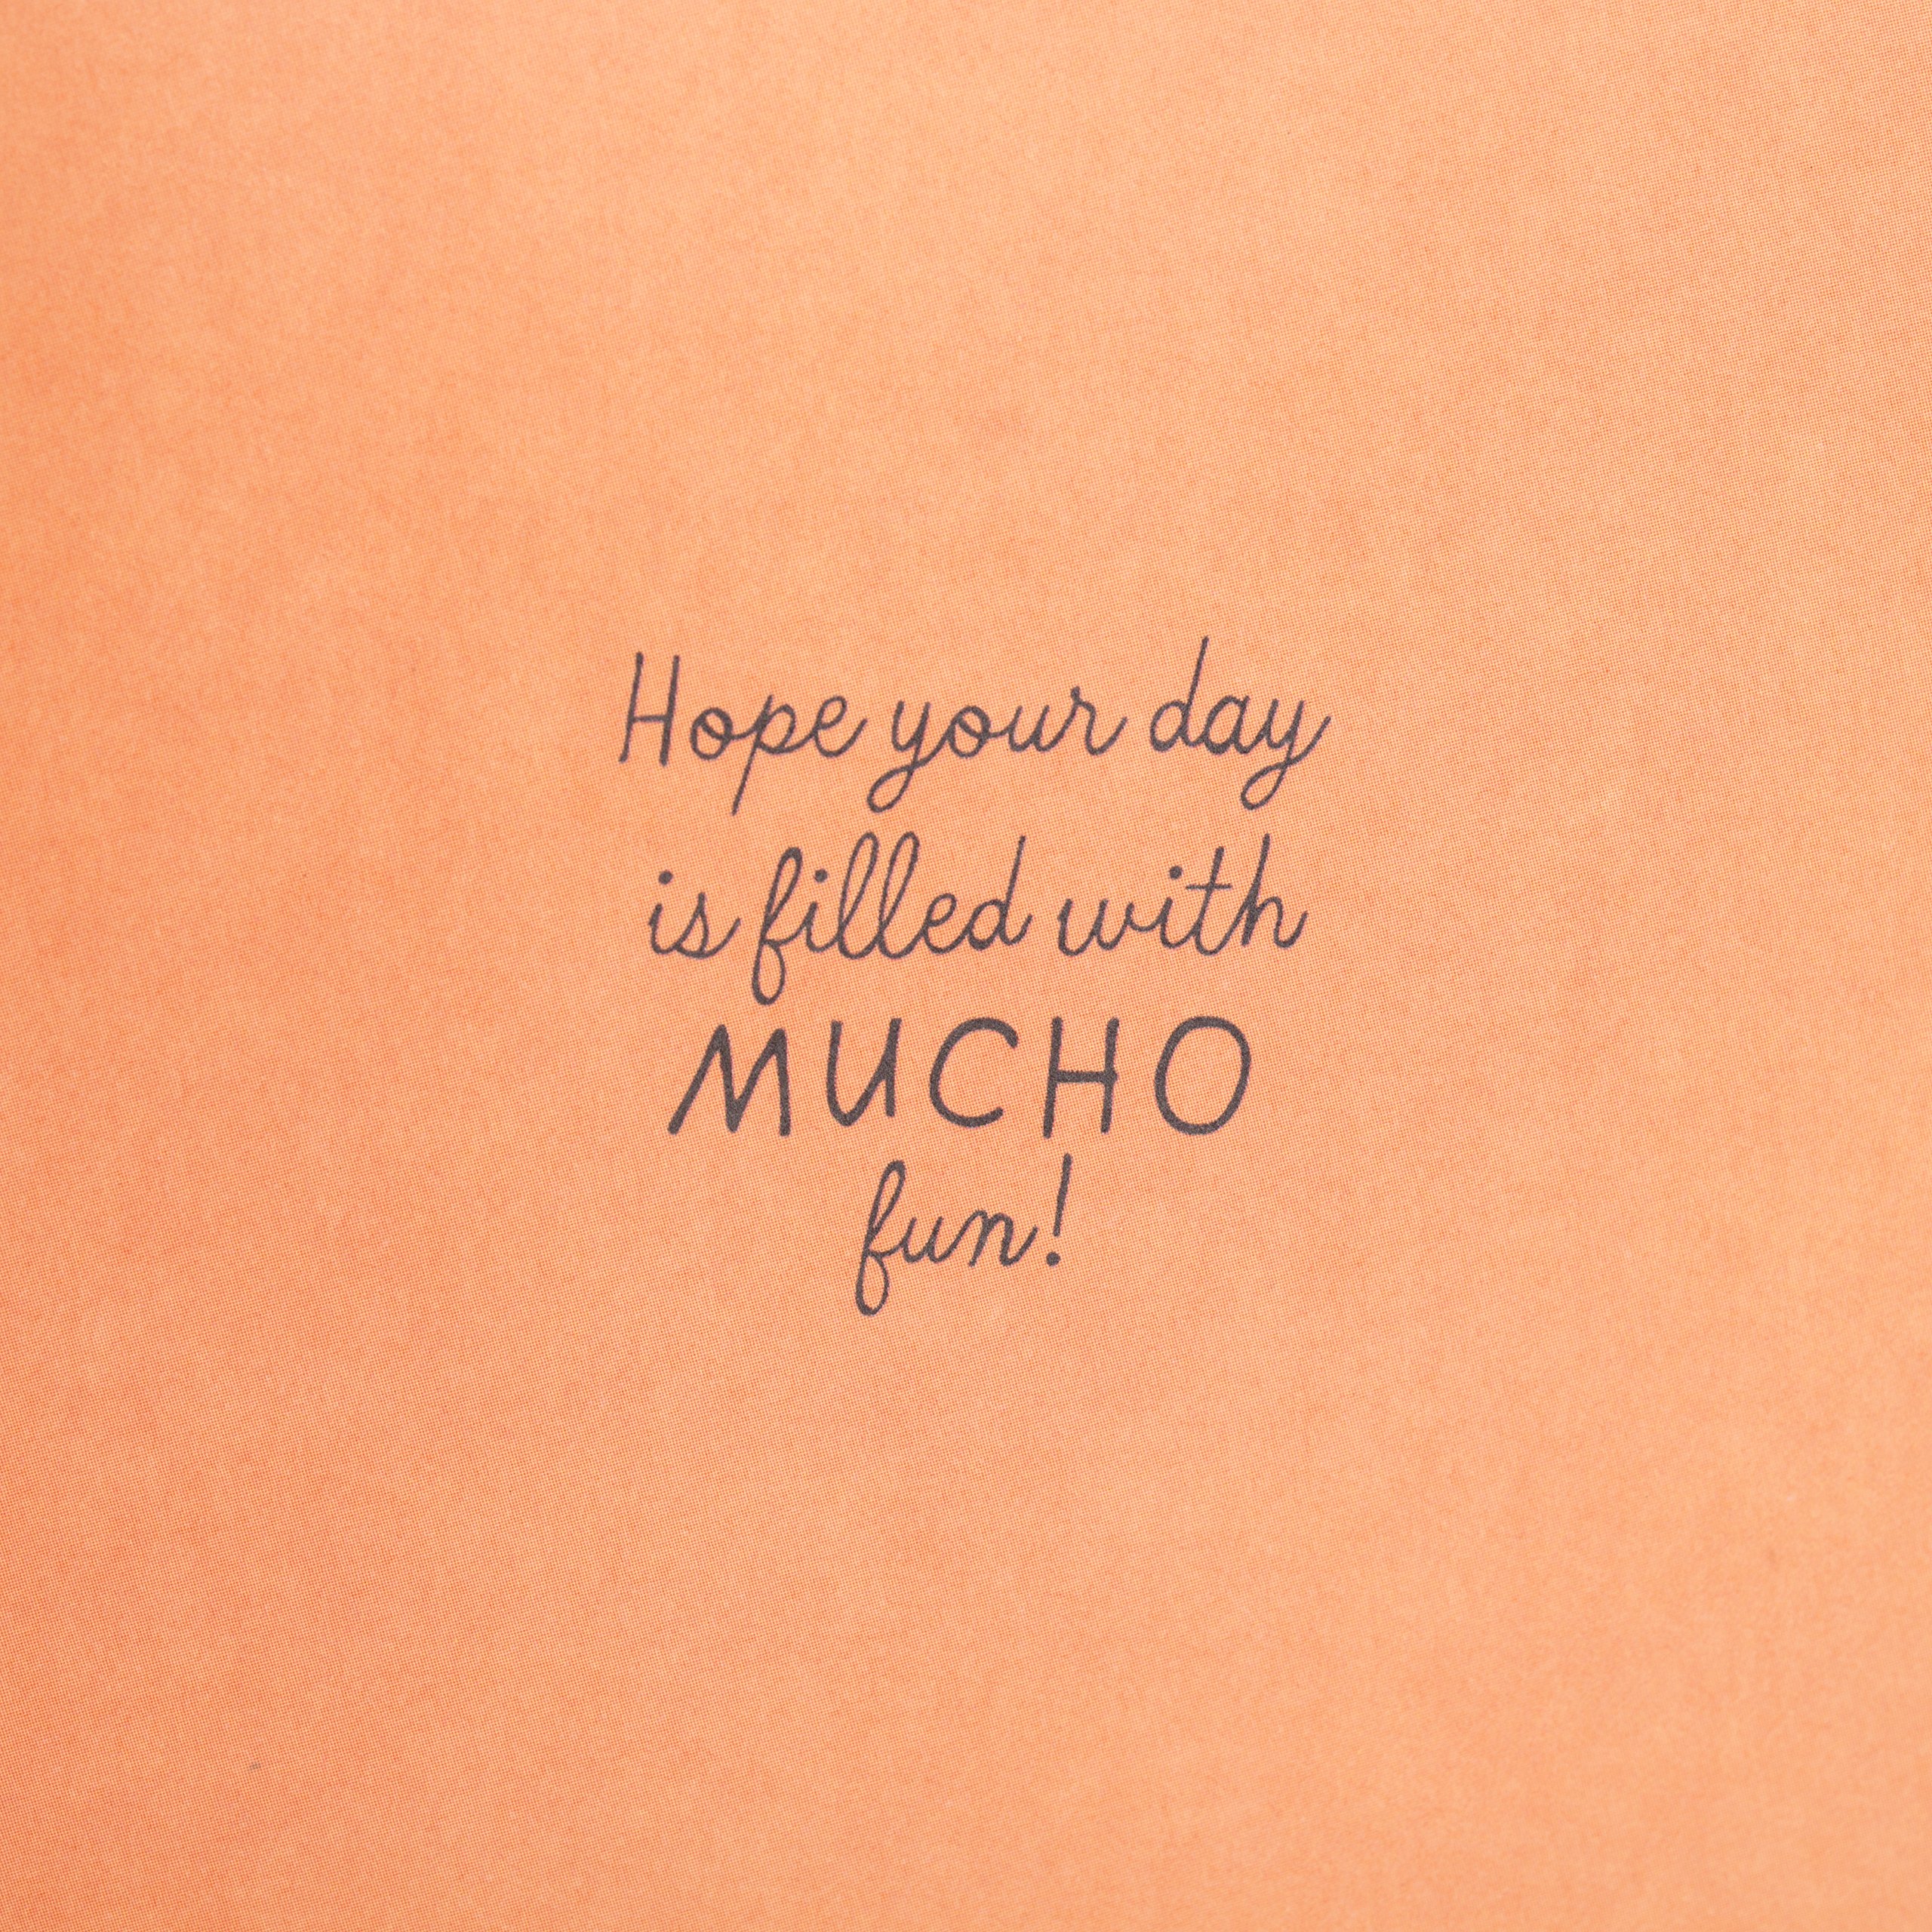 Hope your day
is filled with
MUCHO
fun!